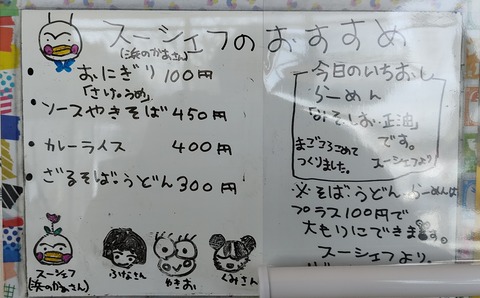 スーシェフのおすすめ
(浜のかあさん)
・おにぎり 100円
「さけ。うめ」
・ソースやきそば 450円
・カレーライス 400円
・ざるそば・うどん 300円
今日のいちおし
らーめん
「みそ・しお・正油」
です。
まごころこめて
つくりました。
スーシェフより
※そば・うどん・らーめんは
プラス100円で
大もりにできます。
スーシェフより。
スーシェフ
(浜のかあさん)
ふけなさん
やきお
くみさん